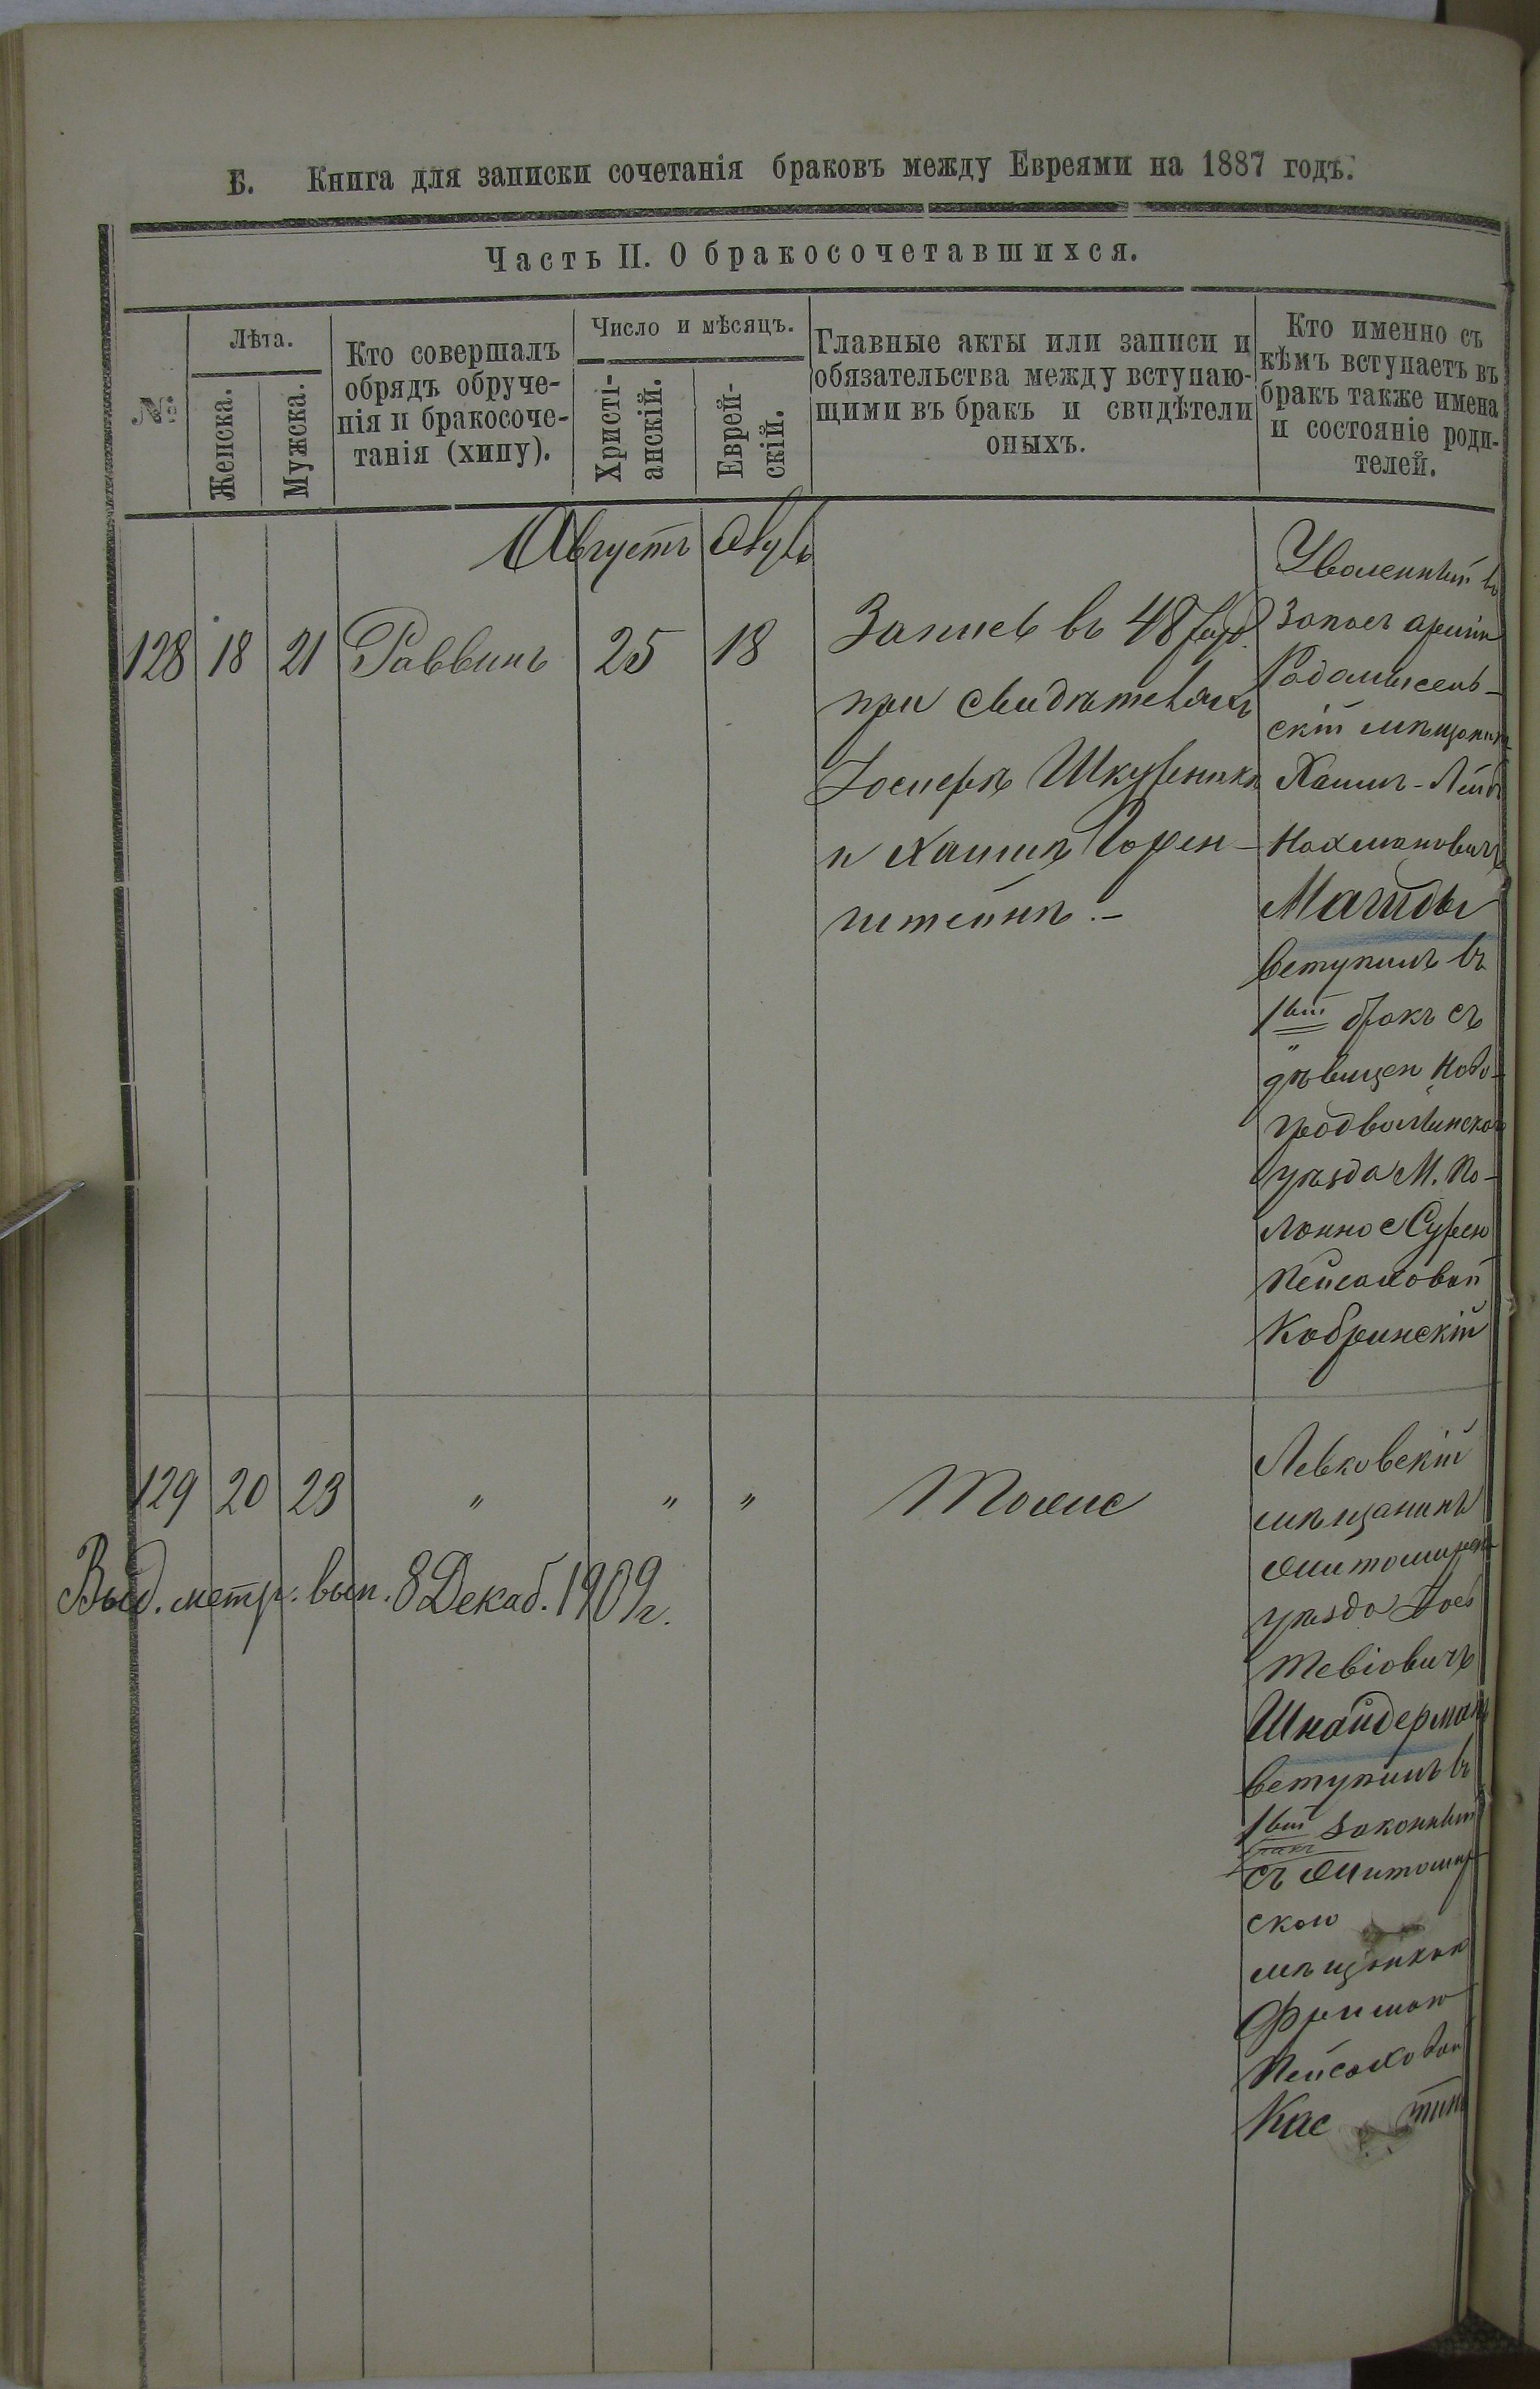 Б. Книга для записки сочетанія браковъ между Евреями на 1887 годъ.
Часть II. О бракосочетавшихся.
№
Лѣта.
Женска.
Мужска.
Кто совершалъ
обрядъ обруче-
нія и бракосоче-
танія (хипу).
Число и мѣсяцъ.
Христі-
анскій.
Еврей-
скій.
Главные акты или записи и
обязательства между вступаю-
щими въ бракъ и свидѣтели
оныхъ.
Кто именно съ
кѣмъ вступаетъ въ
бракъ также имена
и состояніе роди-
телей.
Августъ
128 18 21 Раввинъ 25 18
Запись въ 48 руб.
при свидѣтеляхъ
Іосифѣ Шкурникѣ
и Хаимѣ Горен-
штейнѣ.-
Уволенный въ
Запасъ арміи
Радомысль-
скій мѣщанинъ
Хаимъ-Лейбъ
Нахмановичъ
Магидъ
вступилъ въ
1ый бракъ съ
дѣвицею Ново-
градволынского
уѣзда М. По-
лонно Сурею
Пейсаховой
Кобринскій
129 20 23 " " "
Тоже
Левковскій
мѣщанинъ
Житомирск
уѣзда Іось
Тевіовичъ
Шнайдерман
вступилъ въ
1ый законный
бракъ
съ Житомир
скою
мѣщанкою
Фримою
Пейсаховой
Кас тин
Выд. метр. вып. 8 Декаб. 1909 г.